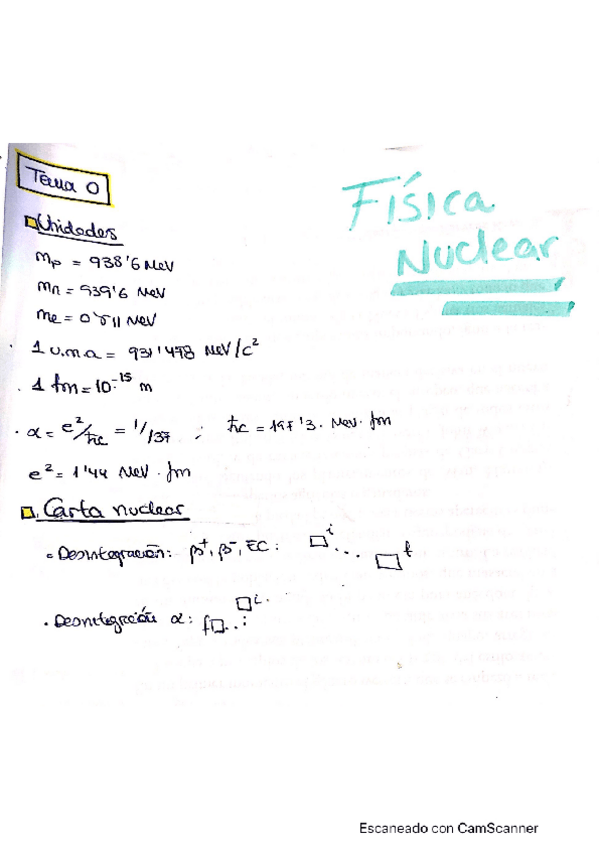 Tema 0
Física
Nuclear
Unidades
mp = 938'6 MeV
mn = 939'6 MeV
me = 0'511 MeV
1 u.m.a = 931'478 MeV/c²
1 fm = 10⁻¹⁵ m
α = e²/ħc = 1/137 ; ħc = 197'3 · MeV · fm
e² = 1'44 MeV · fm
Carta nuclear
Desintegración: β⁺, β⁻, EC : i ... f
Desintegración α: f ... i
Escaneado con CamScanner